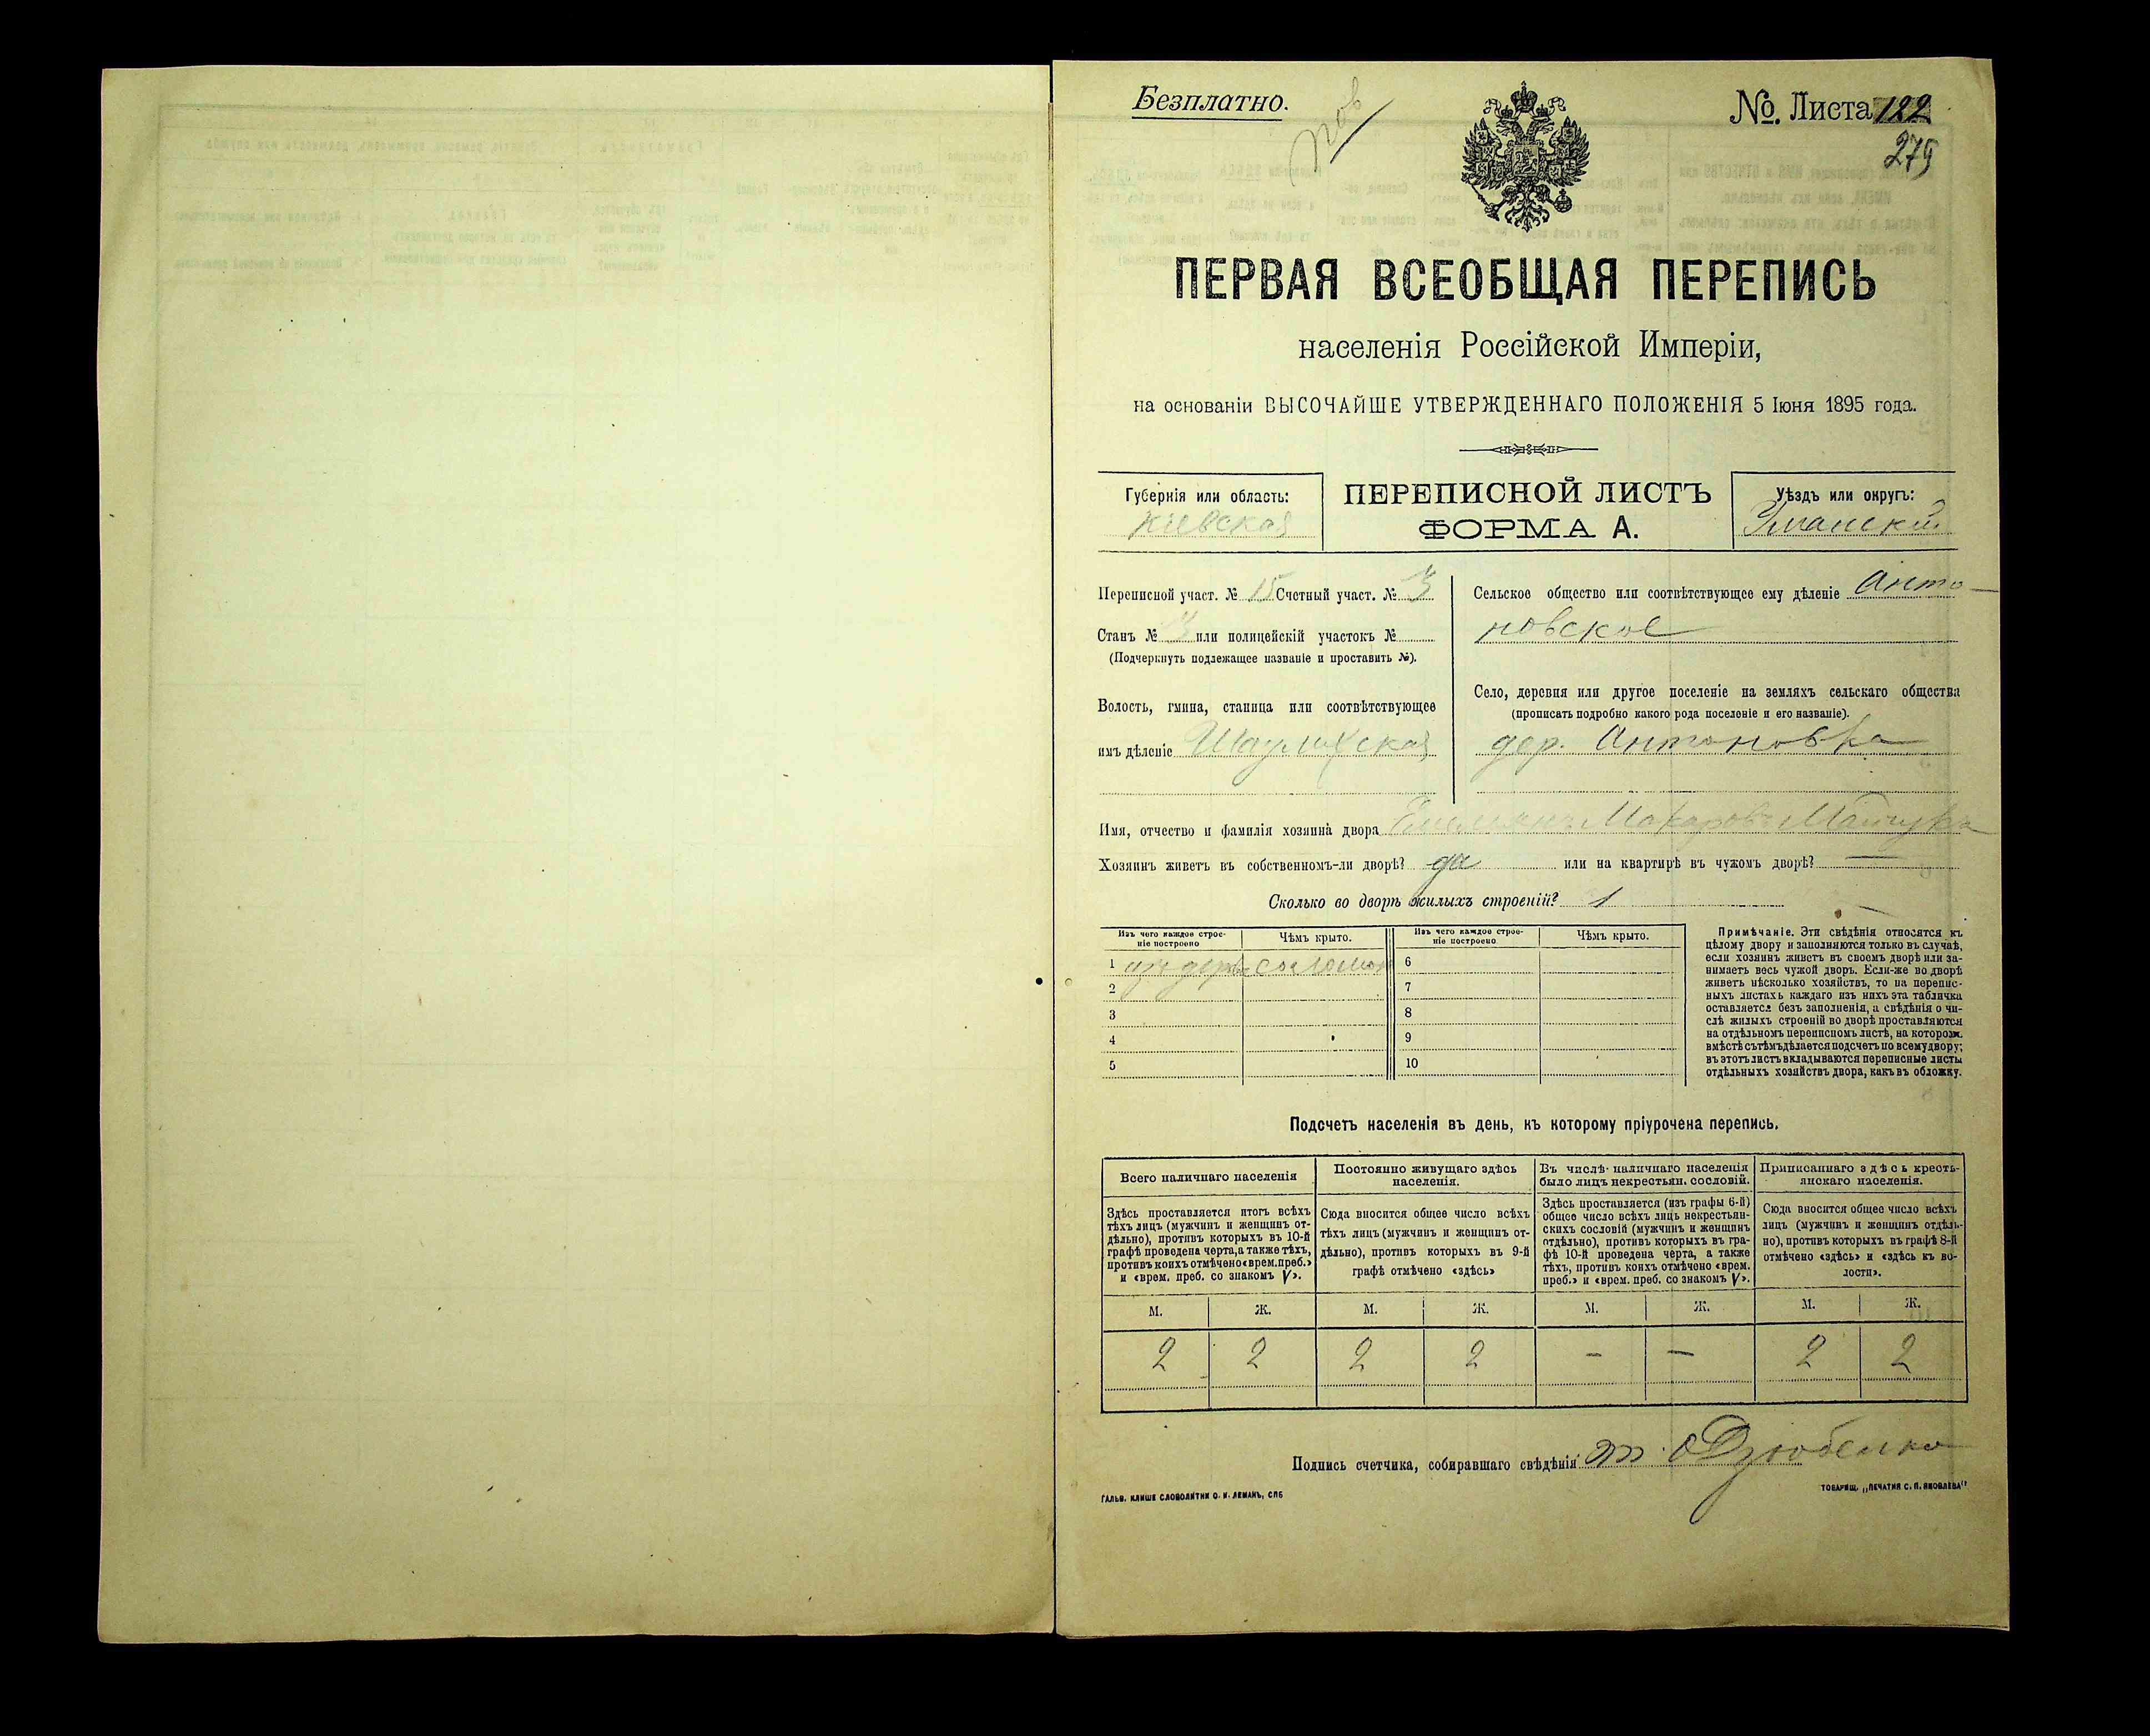 Безплатно.
пов
№. Листа 122
275
ПЕРВАЯ ВСЕОБЩАЯ ПЕРЕПИСЬ
населенія Россійской Имперіи,
на основаніи ВЫСОЧАЙШЕ УТВЕРЖДЕННАГО ПОЛОЖЕНІЯ 5 Іюня 1895 года.
Губернія или область:
Кіевская
ПЕРЕПИСНОЙ ЛИСТЪ
ФОРМА А.
Уѣздъ или округъ:
Уманскій
Переписной участ. № 15 Счетный участ. № 3
Станъ № 3 или полицейскій участокъ №
(Подчеркнуть подлежащее названіе и проставить №).
Волость, гмина, станица или соотвѣтствующее
имъ дѣленіе Шаулихская
Сельское общество или соотвѣтствующее ему дѣленіе Анто-
новское
Село, деревня или другое поселеніе на земляхъ сельскаго общества
(прописать подробно какого рода поселеніе и его названіе).
дер. Антоновка
Имя, отчество и фамилія хозяина двора Емельянъ Макаровъ
Хозяинъ живетъ въ собственномъ-ли дворѣ? да или на квартирѣ въ чужомъ дворѣ? —
Сколько во дворѣ жилыхъ строеній? 1
Изъ чего каждое строе-
ніе построено
Чѣмъ крыто.
Изъ чего каждое строе-
ніе построено
Чѣмъ крыто.
1 изъ дерева соломою
2
3
4
5
6
7
8
9
10
Примѣчаніе. Эти свѣдѣнія относятся къ
цѣлому двору и заполняются только въ случаѣ,
если хозяинъ живетъ въ своемъ дворѣ или за-
нимаетъ весь чужой дворъ. Если-же во дворѣ
живетъ нѣсколько хозяйствъ, то на перепис-
ныхъ листахъ каждаго изъ нихъ эта табличка
оставляется безъ заполненія, а свѣдѣнія о чи-
слѣ жилыхъ строеній во дворѣ проставляются
на отдѣльномъ переписномъ листѣ, на которомъ
вмѣстѣ съ тѣмъ дѣлается подсчетъ по всему двору;
въ этотъ листъ вкладываются переписные листы
отдѣльныхъ хозяйствъ двора, какъ въ обложку.
Подсчетъ населенія въ день, къ которому пріурочена перепись.
Всего наличнаго населенія
Здѣсь проставляется итогъ всѣхъ
тѣхъ лицъ (мужчинъ и женщинъ от-
дѣльно), противъ которыхъ въ 10-й
графѣ проведена черта, а также тѣхъ,
противъ коихъ отмѣчено «врем. преб.»
и «врем. преб. со знакомъ V».
Постоянно живущаго здѣсь
населенія.
Сюда вносится общее число всѣхъ
тѣхъ лицъ (мужчинъ и женщинъ от-
дѣльно), противъ которыхъ въ 9-й
графѣ отмѣчено «здѣсь»
Въ числѣ наличнаго населенія
было лицъ некрестьян. сословій.
Здѣсь проставляется (изъ графы 6-й)
общее число всѣхъ лицъ некрестьян-
скихъ сословій (мужчинъ и женщинъ
отдѣльно), противъ которыхъ въ гра-
фѣ 10-й проведена черта, а также
тѣхъ, противъ коихъ отмѣчено «врем.
преб.» и «врем. преб. со знакомъ V».
Приписаннаго здѣсь кресть-
янскаго населенія.
Сюда вносится общее число всѣхъ
лицъ (мужчинъ и женщинъ отдѣль-
но), противъ которыхъ въ графѣ 8-й
отмѣчено «здѣсь» и «здѣсь къ во-
лости».
М. Ж. М. Ж. М. Ж. М. Ж.
2 2 2 2 – – 2 2
Подпись счетчика, собиравшаго свѣдѣнія Дзюбенко
ГАЛЬВ. КЛИШЕ СЛОВОЛИТНИ О. И. ЛЕМАНЪ, СПБ
ТОВАРИЩ. „ПЕЧАТНЯ С. П. ЯКОВЛЕВА"